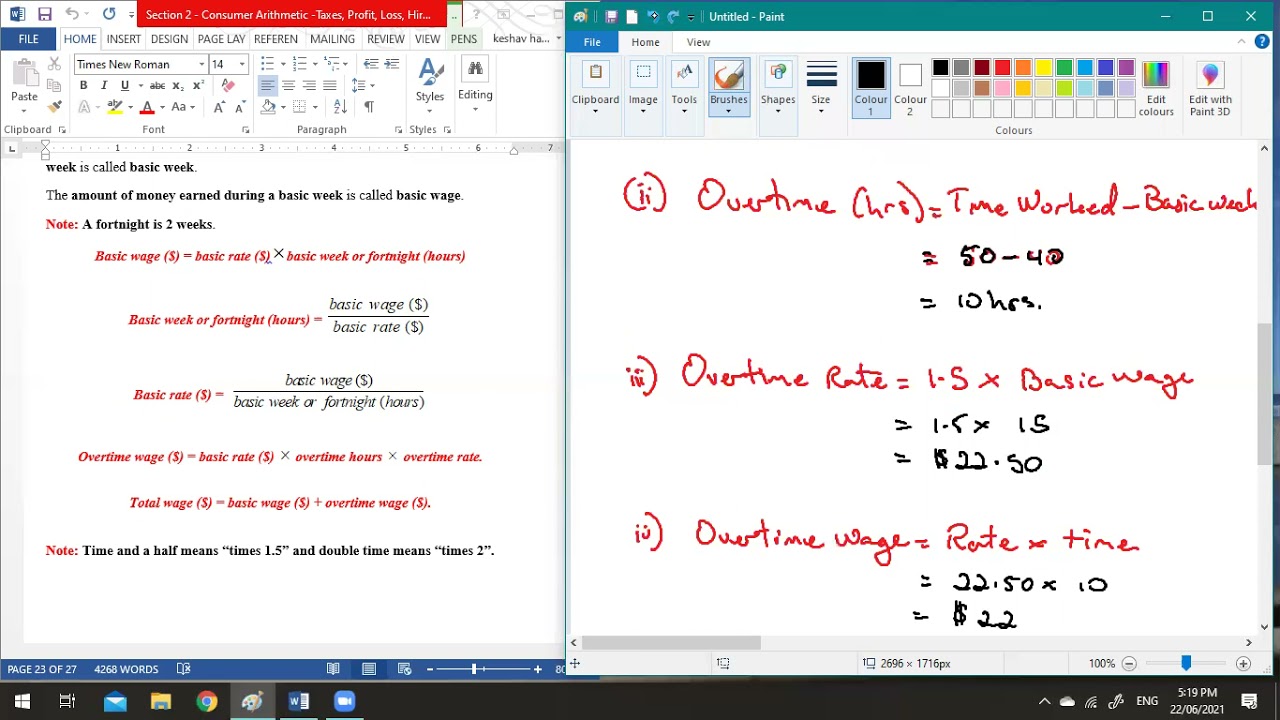 Section 2 - Consumer Arithmetic -Taxes, Profit, Loss, Hir...
FILE HOME INSERT DESIGN PAGE LAY REFEREN MAILING REVIEW VIEW PENS keshav ha...
Times New Roman 14
Paste
Styles
Editing
Clipboard Font Paragraph Styles
1 2 3 4 5 6 7
week is called basic week.
The amount of money earned during a basic week is called basic wage.
Note: A fortnight is 2 weeks.
Basic wage ($) = basic rate ($) × basic week or fortnight (hours)
Basic week or fortnight (hours) = basic wage ($) / basic rate ($)
Basic rate ($) = basic wage ($) / basic week or fortnight (hours)
Overtime wage ($) = basic rate ($) × overtime hours × overtime rate.
Total wage ($) = basic wage ($) + overtime wage ($).
Note: Time and a half means “times 1.5” and double time means “times 2”.
PAGE 23 OF 27 4268 WORDS
Untitled - Paint
File Home View
Clipboard Image Tools Brushes Shapes Size Colour 1 Colour 2 Edit colours Edit with Paint 3D
Colours
(ii) Overtime (hrs) = Time Worked - Basic week
= 50 - 40
= 10 hrs.
iii) Overtime Rate = 1.5 × Basic wage
= 1.5 × 15
= $22.50
iv) Overtime wage = Rate × time
= 22.50 × 10
= $22
2696 × 1716px 100%
ENG
5:19 PM
22/06/2021